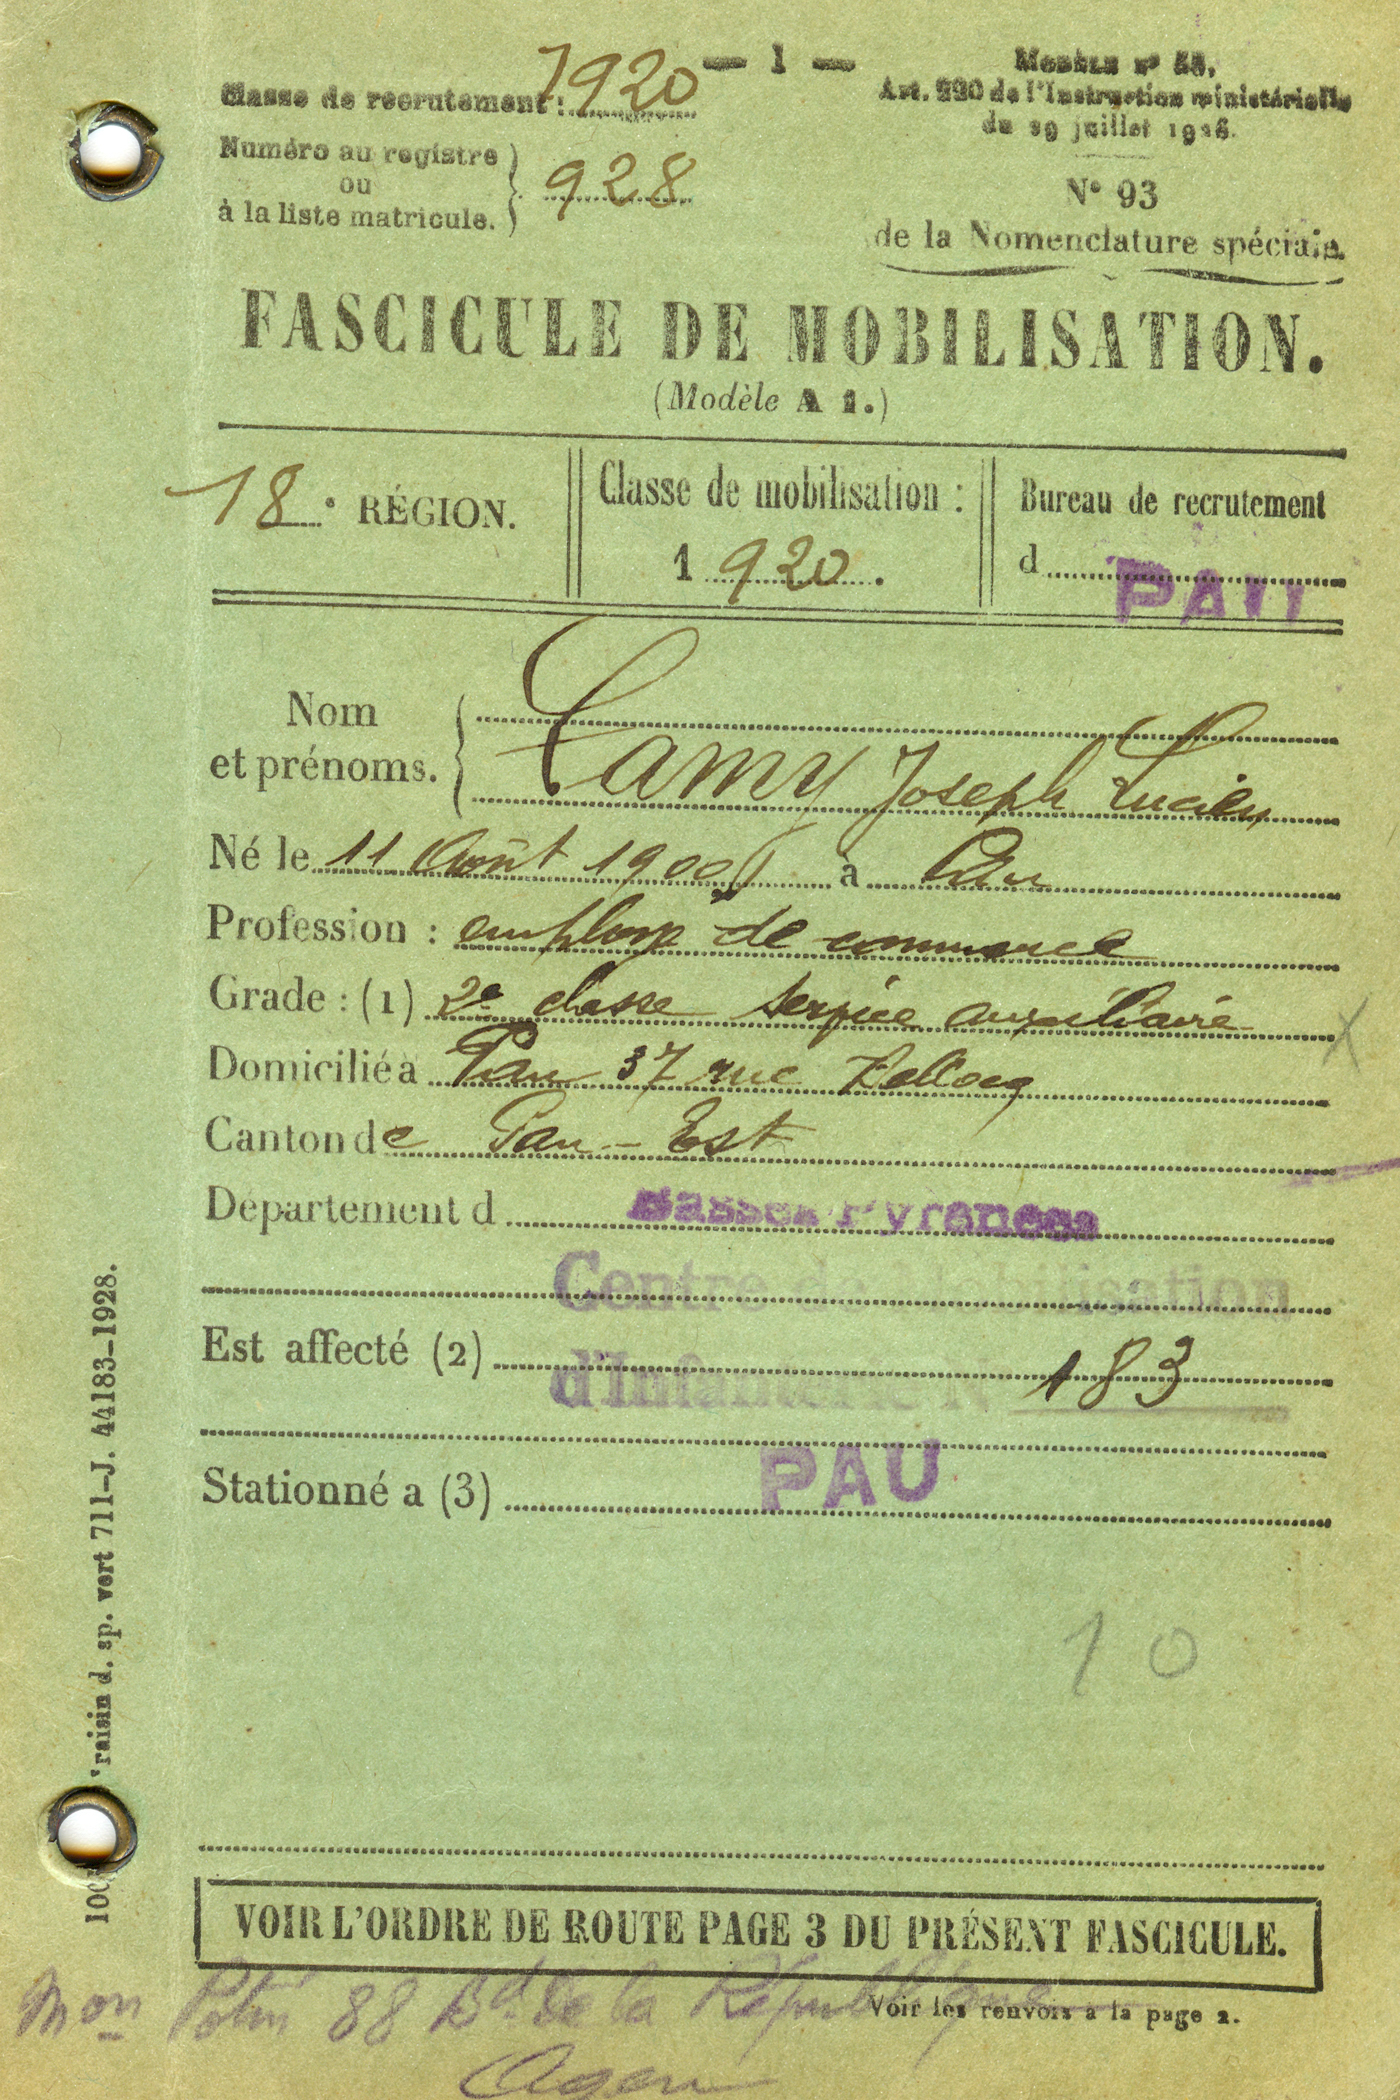 — 1 —
Classe de recrutement : 1920
Numéro au registre
ou
à la liste matricule. } 928
Modèle n°
Art. de l'Instruction ministérielle
du 29 juillet
N° 93
de la Nomenclature spéciale.
FASCICULE DE MOBILISATION.
(Modèle A 1.)
18e RÉGION.
Classe de mobilisation :
1920.
Bureau de recrutement
d PAU
Nom
et prénoms. } Lamy Joseph Lucien
Né le 11 Août 1900 à Pau
Profession : employé de commerce
Grade : (1) 2e classe service auxiliaire
Domicilié à Pau 37 rue
Canton de Pau - Est
Département d Basses Pyrénées
Centre de Mobilisation
Est affecté (2) d'Infanterie N° 183
Stationné à (3) PAU
10
VOIR L'ORDRE DE ROUTE PAGE 3 DU PRÉSENT FASCICULE.
Voir les renvois à la page 2.
Mon Potin 88 Bd de la République
Agen
raisin d. sp. vert 711-J. 44183-1928.